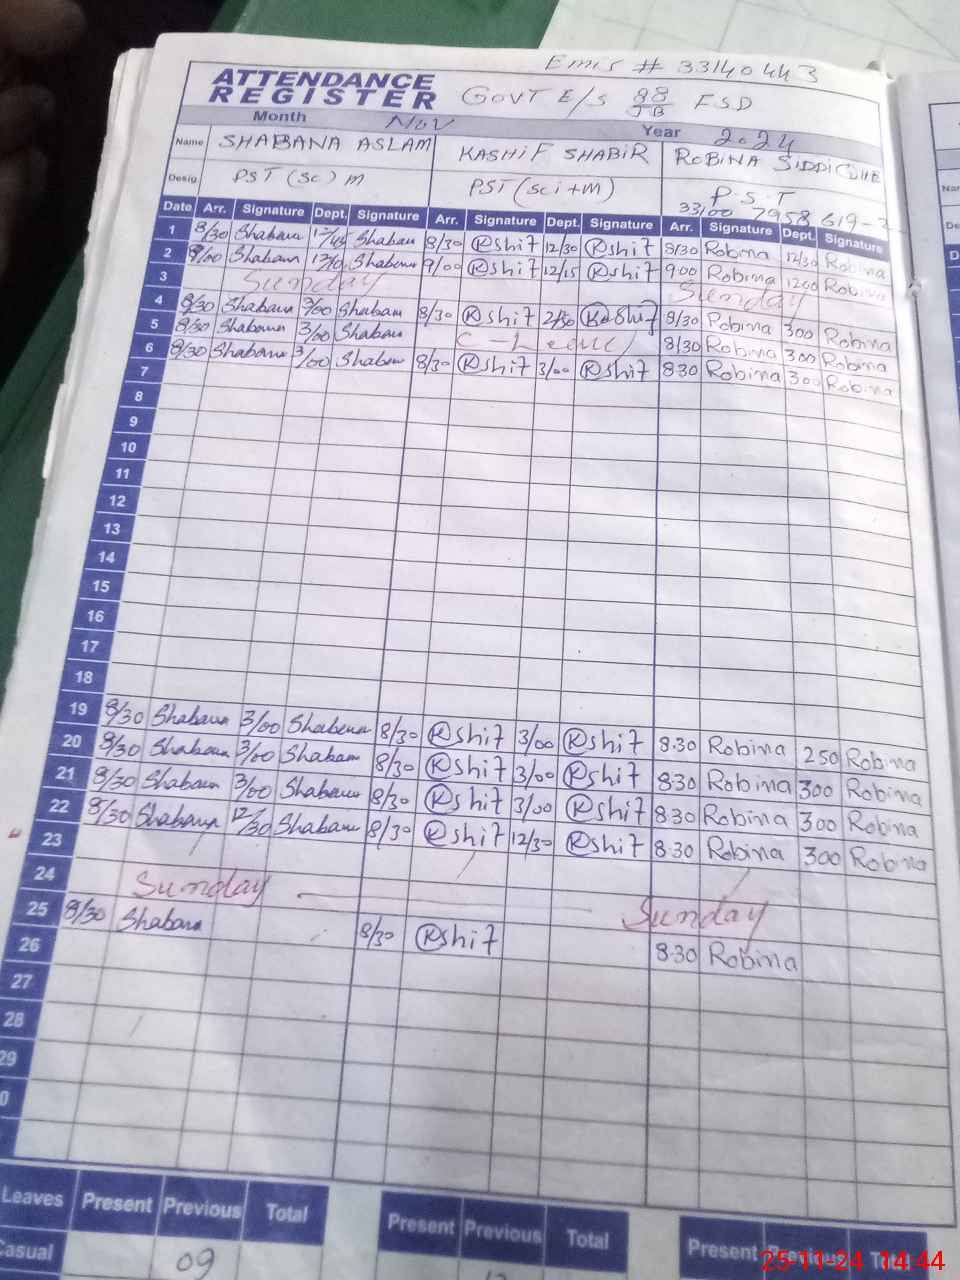 Emis # 33140443
ATTENDANCE REGISTER GOVT E/S 98/JB FSD
Month Nov Year 2024
Name SHABANA ASLAM KASHIF SHABIR ROBINA SIDDIQUE
Desig. PST (SC) M PST (sci+m) P.S.T
33100 7958 619-2
Date Arr. Signature Dept. Signature Arr. Signature Dept. Signature Arr. Signature Dept. Signature
1 8/30 Shabana 12/45 Shabana 8/30 Kshif 12/30 Kshif 8/30 Robina 12/30 Robina
2 9/00 Shabana Shabana 9/00 Kshif 12/15 Kshif 9.00 Robina 1200 Robina
3 Sunday Sunday
4 8/30 Shabana 3/00 Shabana 8/30 Kshif 2/50 Kashif 8/30 Robina 300 Robina
5 8/30 Shabana 3/00 Shabana C-Leave 8/30 Robina 300 Robina
6 8/30 Shabana 3/00 Shabana 8/30 Kshif 3/00 Kshif 8.30 Robina 300 Robina
7
8
9
10
11
12
13
14
15
16
17
18
19 8/30 Shabana 3/00 Shabana 8/30 Kshif 3/00 Kshif 8.30 Robina 250 Robina
20 8/30 Shabana 3/00 Shabana 8/30 Kshif 3/00 Kshif 8.30 Robina 300 Robina
21 8/30 Shabana 3/00 Shabana 8/30 Kshif 3/00 Kshif 8.30 Robina 300 Robina
22 8/30 Shabana 12/30 Shabana 8/30 Kshif 12/30 Kshif 8.30 Robina 300 Robina
23
24 Sunday Sunday
25 8/30 Shabana 8/30 Kshif 8.30 Robina
26
27
28
29
0
Leaves Present Previous Total Present Previous Total Present Previous Total
Casual 09
25-11-24 14:44